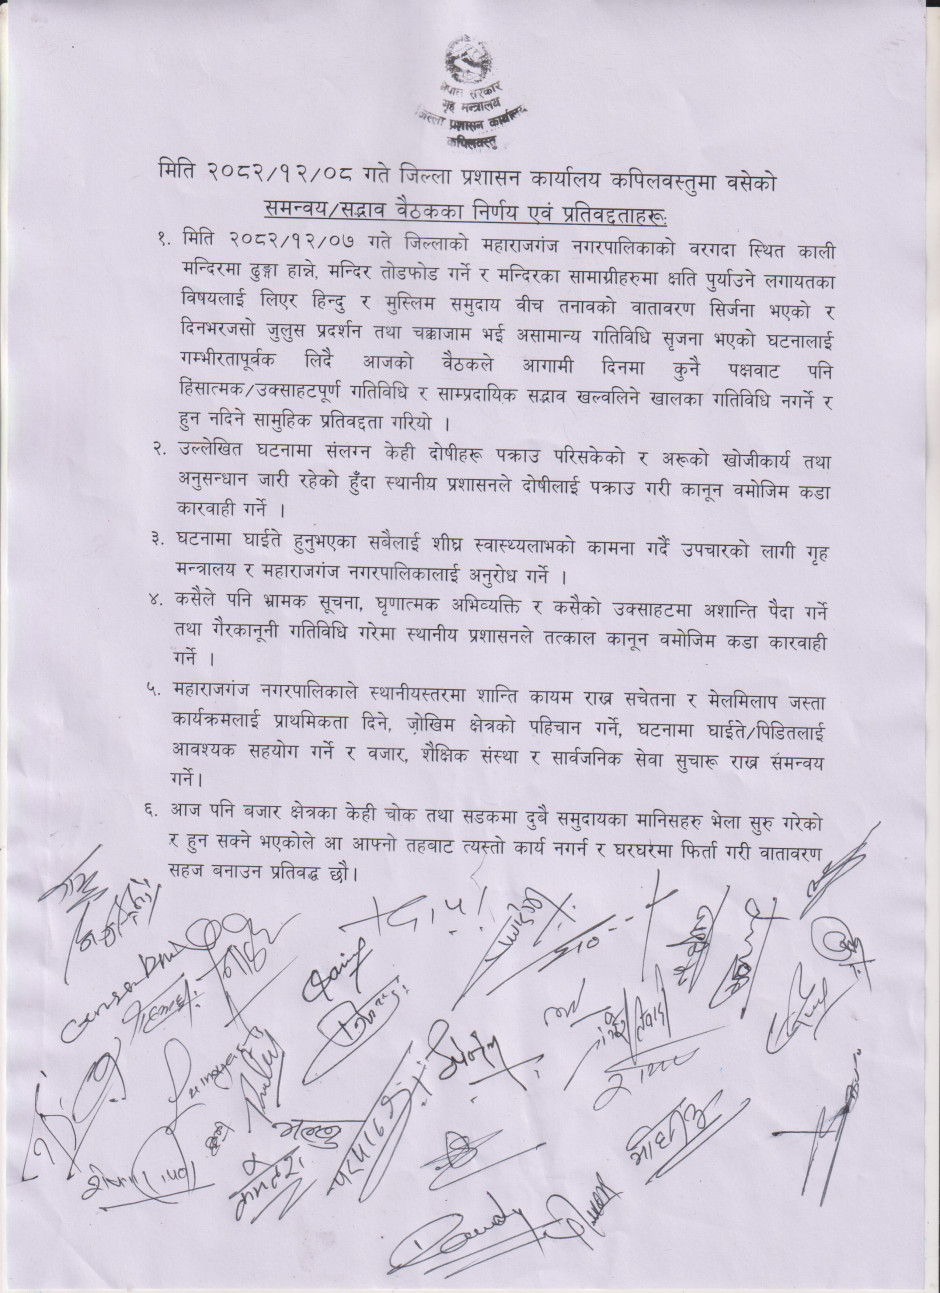 नेपाल सरकार
गृह मन्त्रालय
जिल्ला प्रशासन कार्यालय
कपिलवस्तु
मिति २०८२/१२/०८ गते जिल्ला प्रशासन कार्यालय कपिलवस्तुमा वसेको
समन्वय/सद्भाव वैठकका निर्णय एवं प्रतिवद्दताहरूः
१. मिति २०८२/१२/०७ गते जिल्लाको महाराजगंज नगरपालिकाको वरगदा स्थित काली
मन्दिरमा ढुङ्गा हान्ने, मन्दिर तोडफोड गर्ने र मन्दिरका सामाग्रीहरुमा क्षति पुर्याउने लगायतका
विषयलाई लिएर हिन्दु र मुस्लिम समुदाय वीच तनावको वातावरण सिर्जना भएको र
दिनभरजसो जुलुस प्रदर्शन तथा चक्काजाम भई असामान्य गतिविधि सृजना भएको घटनालाई
गम्भीरतापूर्वक लिदै आजको वैठकले आगामी दिनमा कुनै पक्षवाट पनि
हिंसात्मक/उक्साहटपूर्ण गतिविधि र साम्प्रदायिक सद्भाव खल्वलिने खालका गतिविधि नगर्ने र
हुन नदिने सामुहिक प्रतिवद्दता गरियो ।
२. उल्लेखित घटनामा संलग्न केही दोषीहरू पक्राउ परिसकेको र अरूको खोजीकार्य तथा
अनुसन्धान जारी रहेको हुँदा स्थानीय प्रशासनले दोषीलाई पक्राउ गरी कानून वमोजिम कडा
कारवाही गर्ने ।
३. घटनामा घाईते हुनुभएका सबैलाई शीघ्र स्वास्थ्यलाभको कामना गर्दै उपचारको लागी गृह
मन्त्रालय र महाराजगंज नगरपालिकालाई अनुरोध गर्ने ।
४. कसैले पनि भ्रामक सूचना, घृणात्मक अभिव्यक्ति र कसैको उक्साहटमा अशान्ति पैदा गर्ने
तथा गैरकानूनी गतिविधि गरेमा स्थानीय प्रशासनले तत्काल कानून वमोजिम कडा कारवाही
गर्ने ।
५. महाराजगंज नगरपालिकाले स्थानीयस्तरमा शान्ति कायम राख्न सचेतना र मेलमिलाप जस्ता
कार्यक्रमलाई प्राथमिकता दिने, जोखिम क्षेत्रको पहिचान गर्ने, घटनामा घाईते/पिडितलाई
आवश्यक सहयोग गर्ने र वजार, शैक्षिक संस्था र सार्वजनिक सेवा सुचारू राख्न संमन्वय
गर्ने।
६. आज पनि बजार क्षेत्रका केही चोक तथा सडकमा दुबै समुदायका मानिसहरु भेला सुरु गरेको
र हुन सक्ने भएकोले आ आफ्नो तहबाट त्यस्तो कार्य नगर्न र घरघरमा फिर्ता गरी वातावरण
सहज बनाउन प्रतिवद्ध छौ।